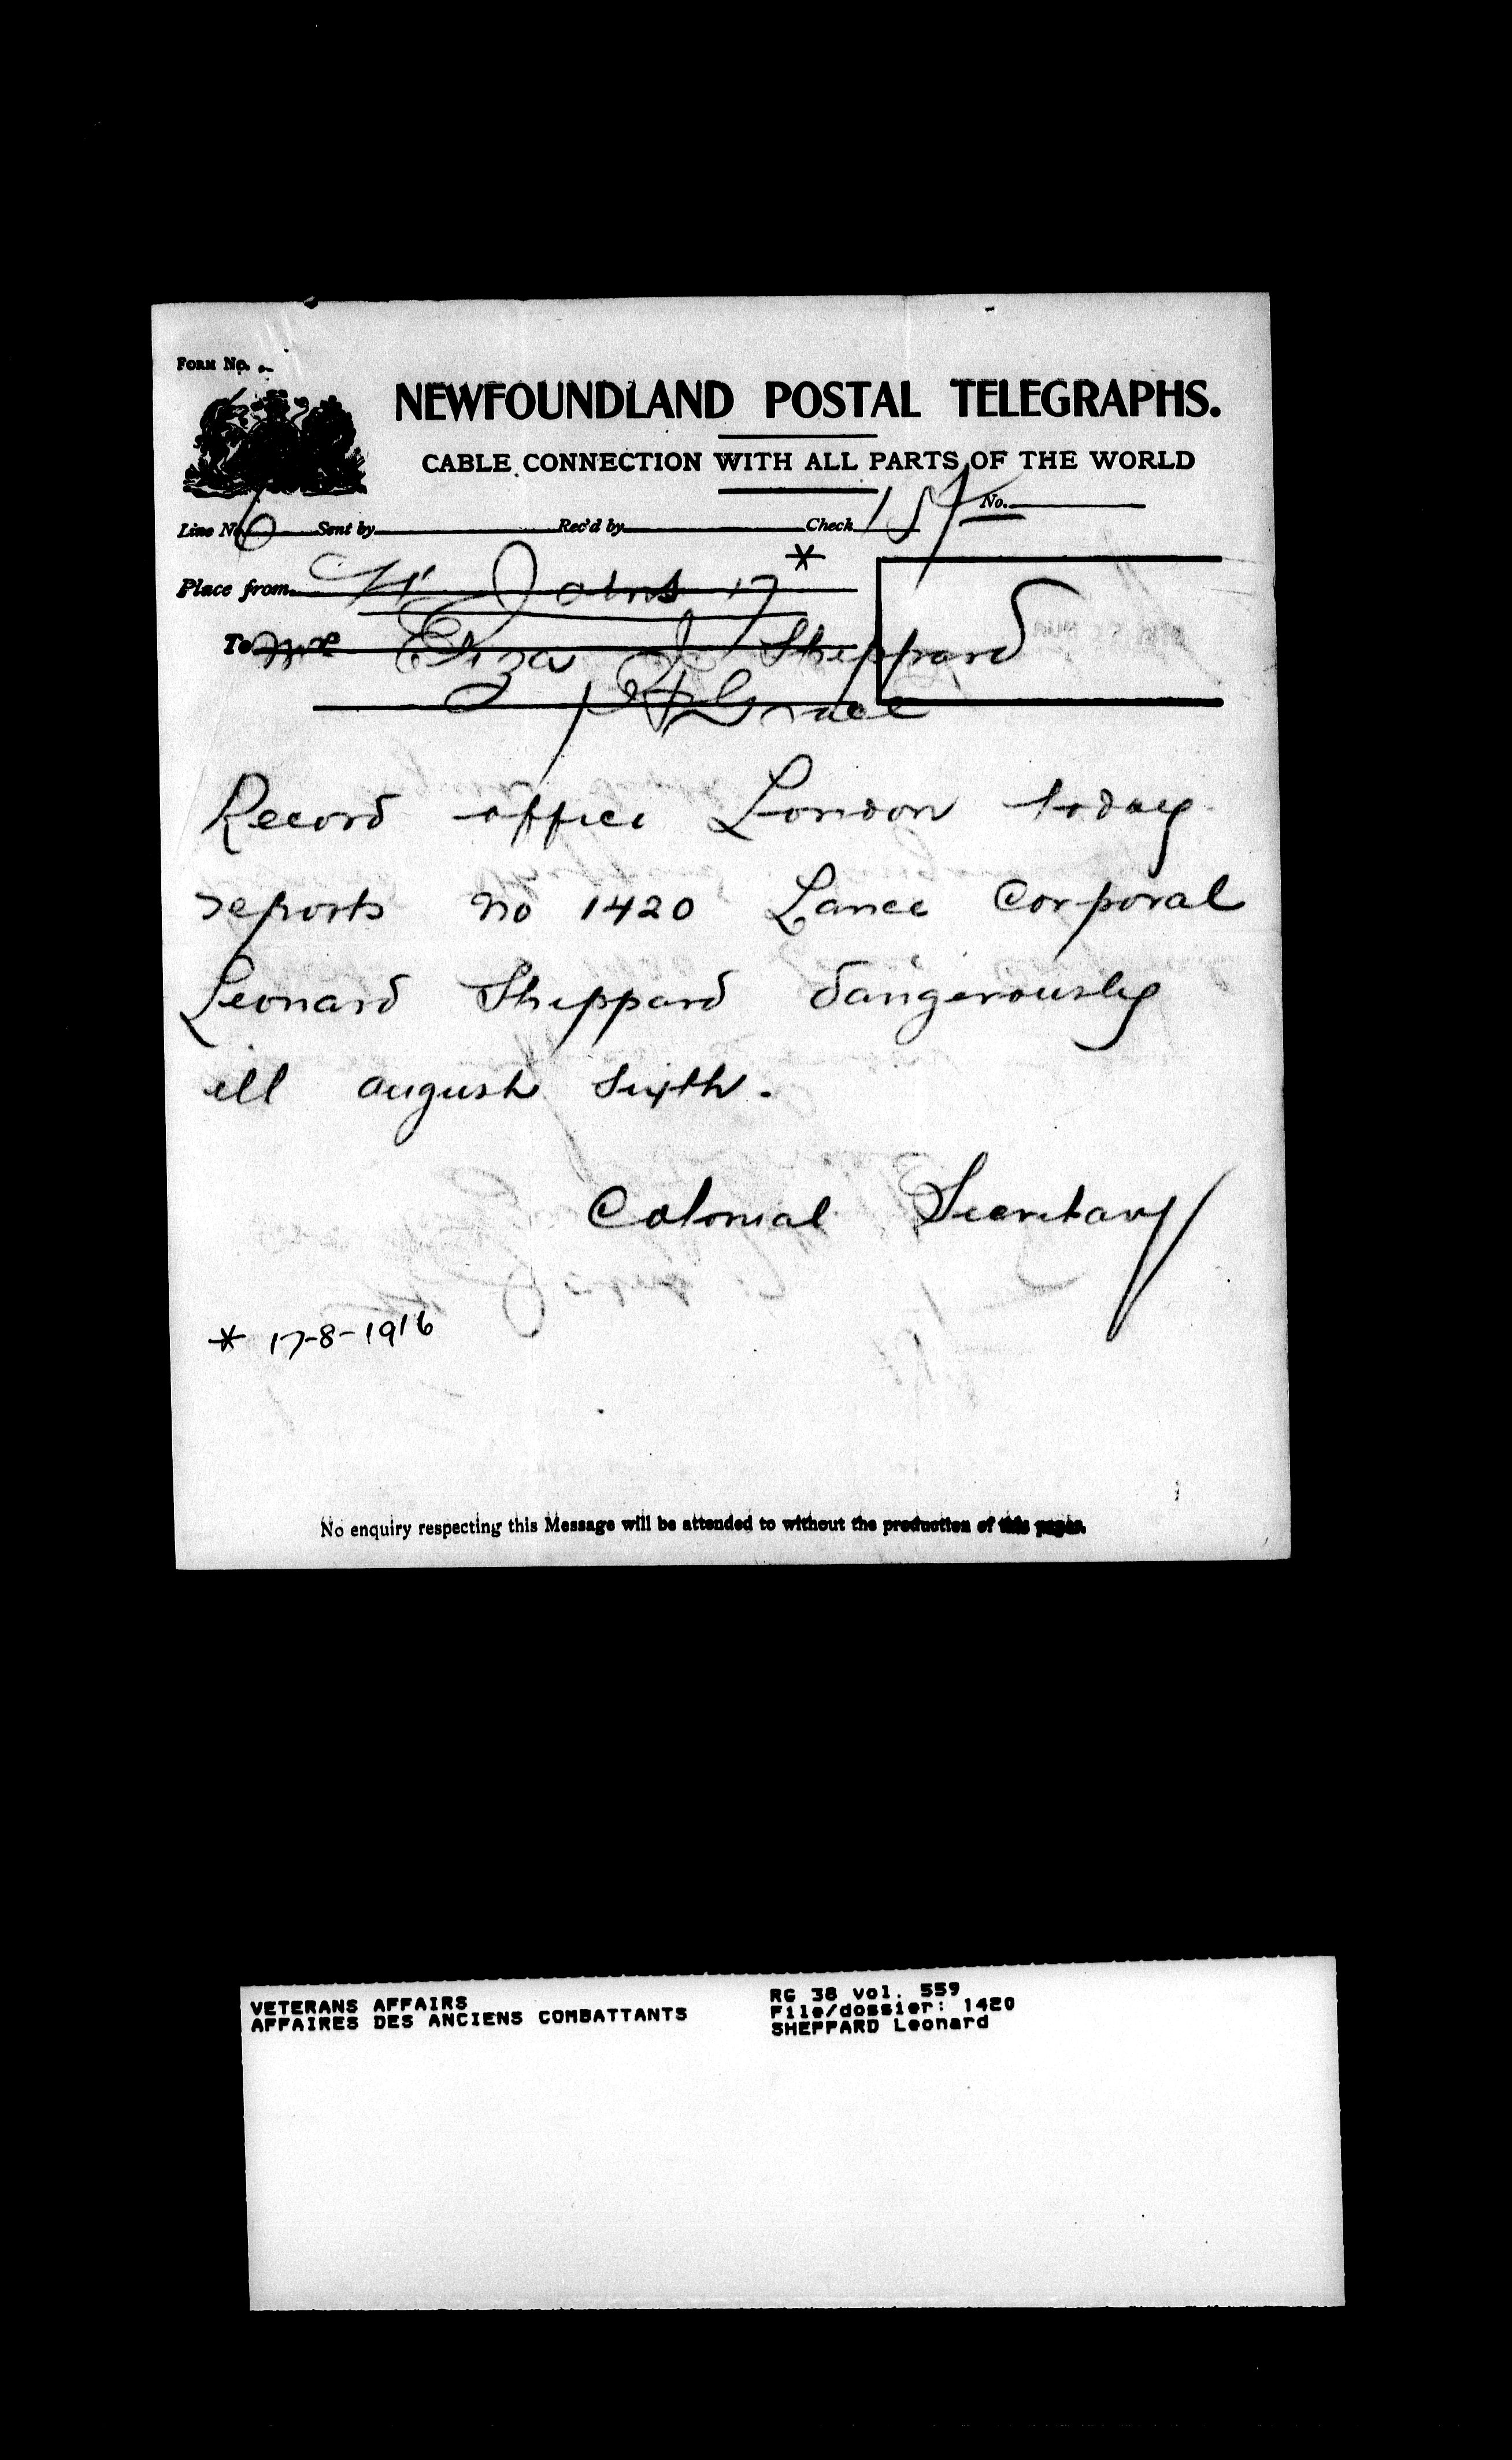 FORM No.
NEWFOUNDLAND POSTAL TELEGRAPHS.
CABLE CONNECTION WITH ALL PARTS OF THE WORLD
No.
Line No. 6 Sent by Rec'd by Check 15
Place from St Johns 17 *
To Mrs Eliza J Sheppard
Hr Grace
Record office London today
reports no 1420 Lance Corporal
Leonard Sheppard dangerously
ill august sixth.
Colonial Secretary
* 17-8-1916
No enquiry respecting this Message will be attended to without the production of this paper.
VETERANS AFFAIRS
AFFAIRES DES ANCIENS COMBATTANTS
RG 38 vol. 559
File/dossier: 1420
SHEPPARD Leonard